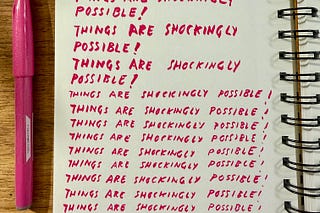 THINGS ARE SHOCKINGLY
POSSIBLE!
THINGS ARE SHOCKINGLY
POSSIBLE!
THINGS ARE SHOCKINGLY
POSSIBLE!
THINGS ARE SHOCKINGLY POSSIBLE!
THINGS ARE SHOCKINGLY POSSIBLE!
THINGS ARE SHOCKINGLY POSSIBLE!
THINGS ARE SHOCKINGLY POSSIBLE!
THINGS ARE SHOCKINGLY POSSIBLE!
THINGS ARE SHOCKINGLY POSSIBLE!
THINGS ARE SHOCKINGLY POSSIBLE!
THINGS ARE SHOCKINGLY POSSIBLE!
THINGS ARE SHOCKINGLY POSSIBLE!